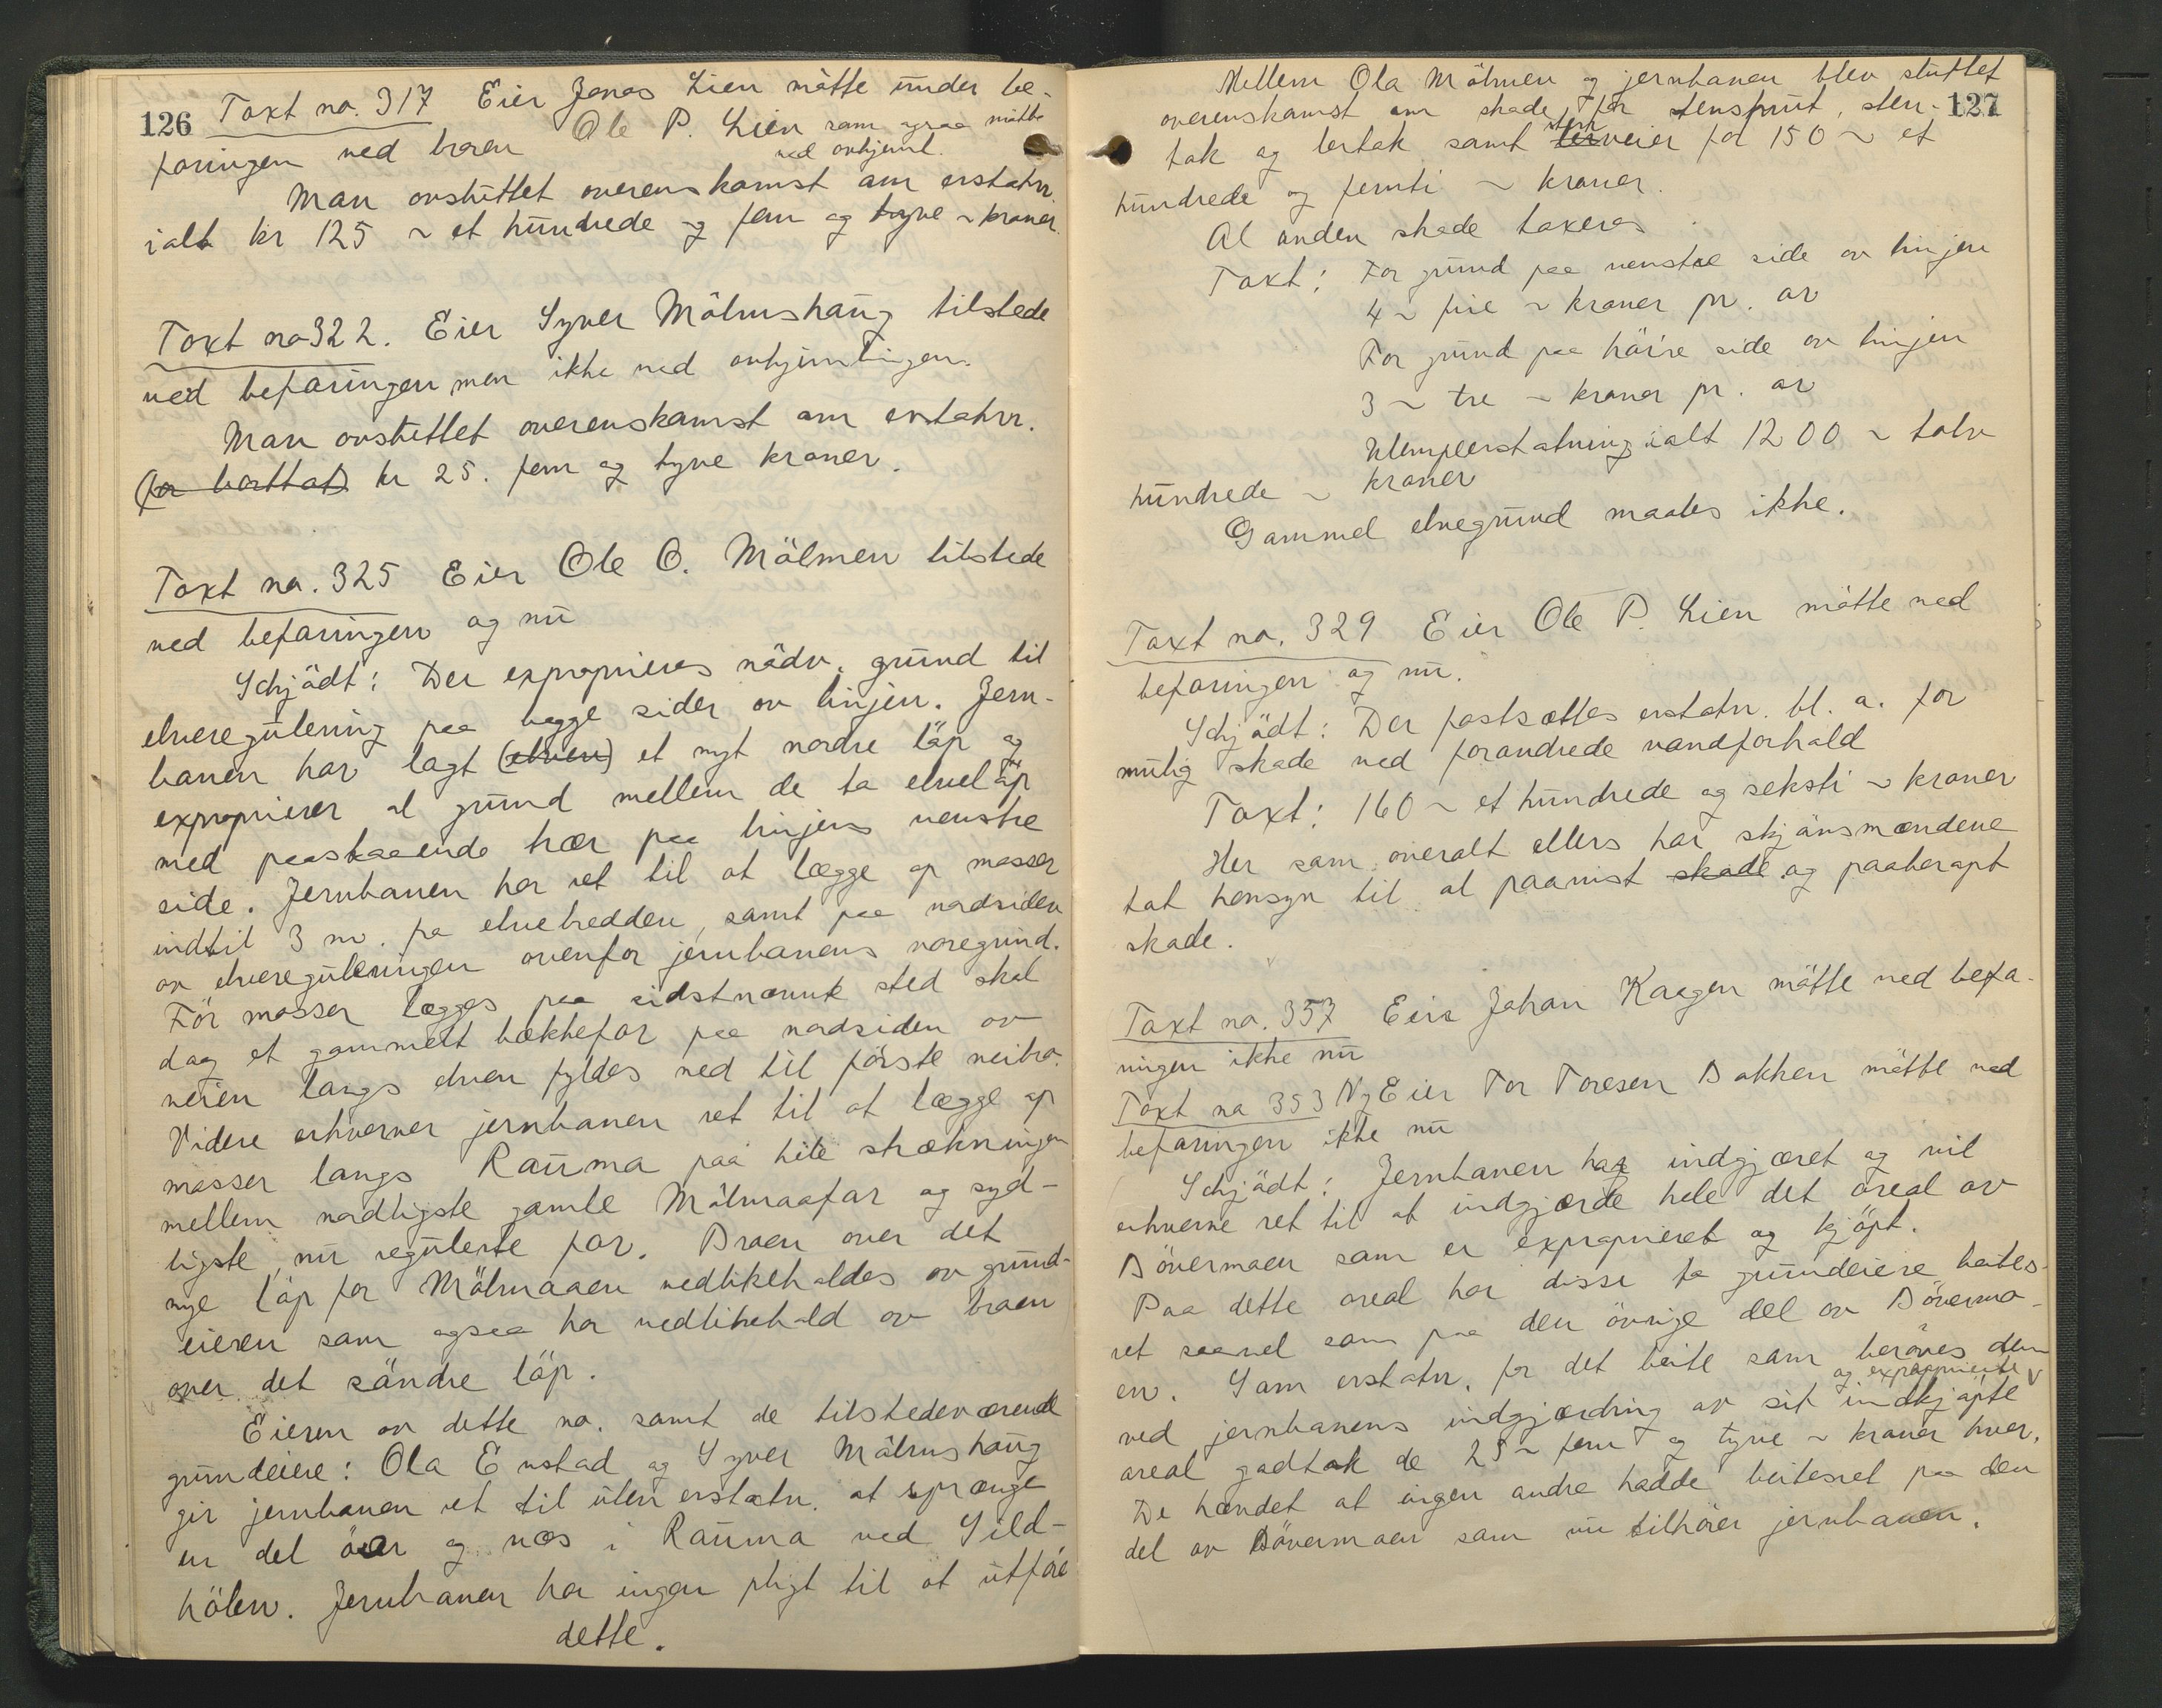 126 Taxt no. 317 Eier Jonas Lien mötte under be-
Ole P. Lien som ogsaa mötte
faringen ved broren
ved avhjeml.
Man avsluttet overenskomst om erstatn.
ialt kr 125 ~ et hundrede og fem og tyve ~ kroner.
Taxt no 322. Eier Syver Mölmshaug tilstede
ved befaringen men ikke ved avhjemlingen.
Man avsluttet overenskomst om erstatn.
(for borttat) kr 25. fem og tyve kroner.
Taxt no. 325 Eier Ole O. Mölmen tilstede
ved befaringen og nu
Schjödt: Der exproprieres nödv. grund til
elveregulering paa begge sider av linjen. Jern-
banen har lagt (elven) et nyt nordre löp og
exproprierer al grund mellem de to elvelöp
med paastaaende trær paa linjens venstre
side. Jernbanen har ret til at lægge op masser
indtil 3 m. fra elvebredden, samt paa nordsiden
av elvereguleringen ovenfor jernbanens voregrind.
För masser lægges paa sidstnævnte sted skal
dog et gammelt bækkefar paa nordsiden av
veien langs elven fyldes ned til förste veibro.
Videre erhverver jernbanen ret til at lægge op
masser langs Rauma paa hele strækningen
mellem nordligste gamle Mölmaafar og syd-
ligste, nu regulerte far. Broen over det
nye löp for Mölmaaen vedlikeholdes av grund-
eieren som ogsaa har vedlikehold av broen
over det söndre löp.
Eieren av dette no. samt de tilstedeværende
grundeiere: Ola Enstad og Syver Mölmshaug
gir jernbanen ret til uten erstatn. at sprænge
en del öer og næs i Rauma ved Sild-
hölen. Jernbanen har ingen pligt til at utföre
dette.
Mellem Ola Mölmen og jernbanen blev sluttet
overenskomst om skade for stensprut, sten- 127
sten
tak og lertak samt lerveier for 150 ~ et
hundrede og femti ~ kroner.
Al anden skade taxeres.
Taxt: For grund paa venstre side av linjen
4 ~ fire ~ kroner pr. ar
For grund paa höire side av linjen
3 ~ tre ~ kroner pr. ar
Ulempeerstatning ialt 1200 ~ tolv
hundrede ~ kroner
Gammel elvegrund maales ikke.
Taxt no. 329 Eier Ole P. Lien mötte ved
befaringen og nu.
Schjödt: Der fastsættes erstatn. bl. a. for
mulig skade ved forandrede vandforhold
Taxt: 160 ~ et hundrede og seksti ~ kroner
Her som overalt ellers har skjönsmændene
tat hensyn til al paavist skade og paaberopt
skade.
Taxt no. 357 Eier Johan Kaagen mötte ved befa-
ringen ikke nu
Taxt no 353 Ny Eier Tor Toresen Bakken mötte ved
befaringen ikke nu
Schjödt: Jernbanen har indgjæret og vil
erhverve ret til at indgjærde hele det areal av
Bövermoen som er expropieret og kjöpt.
Paa dette areal har disse to grundeiere beites-
ret saavel som paa den övrige del av Bövermo-
en. Som erstatn. for det beite som beröves dem
og exproprierte
ved jernbanens indgjærdning av sit indkjöpte
areal godtok de 25 ~ fem og tyve ~ kroner hver.
De hændet at ingen andre hadde beitesret paa den
del av Bövermoen som nu tilhörer jernbanen.